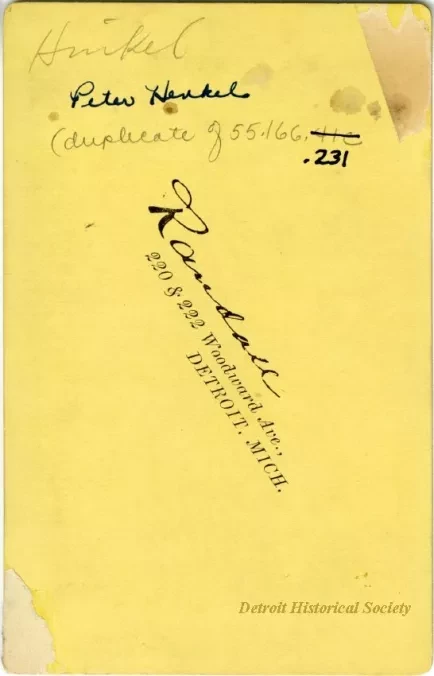 Hinkel
Peter Henkel
(duplicate of 55.166.
.231
Randall
220 & 222 Woodward Ave.,
DETROIT, MICH.
Detroit Historical Society